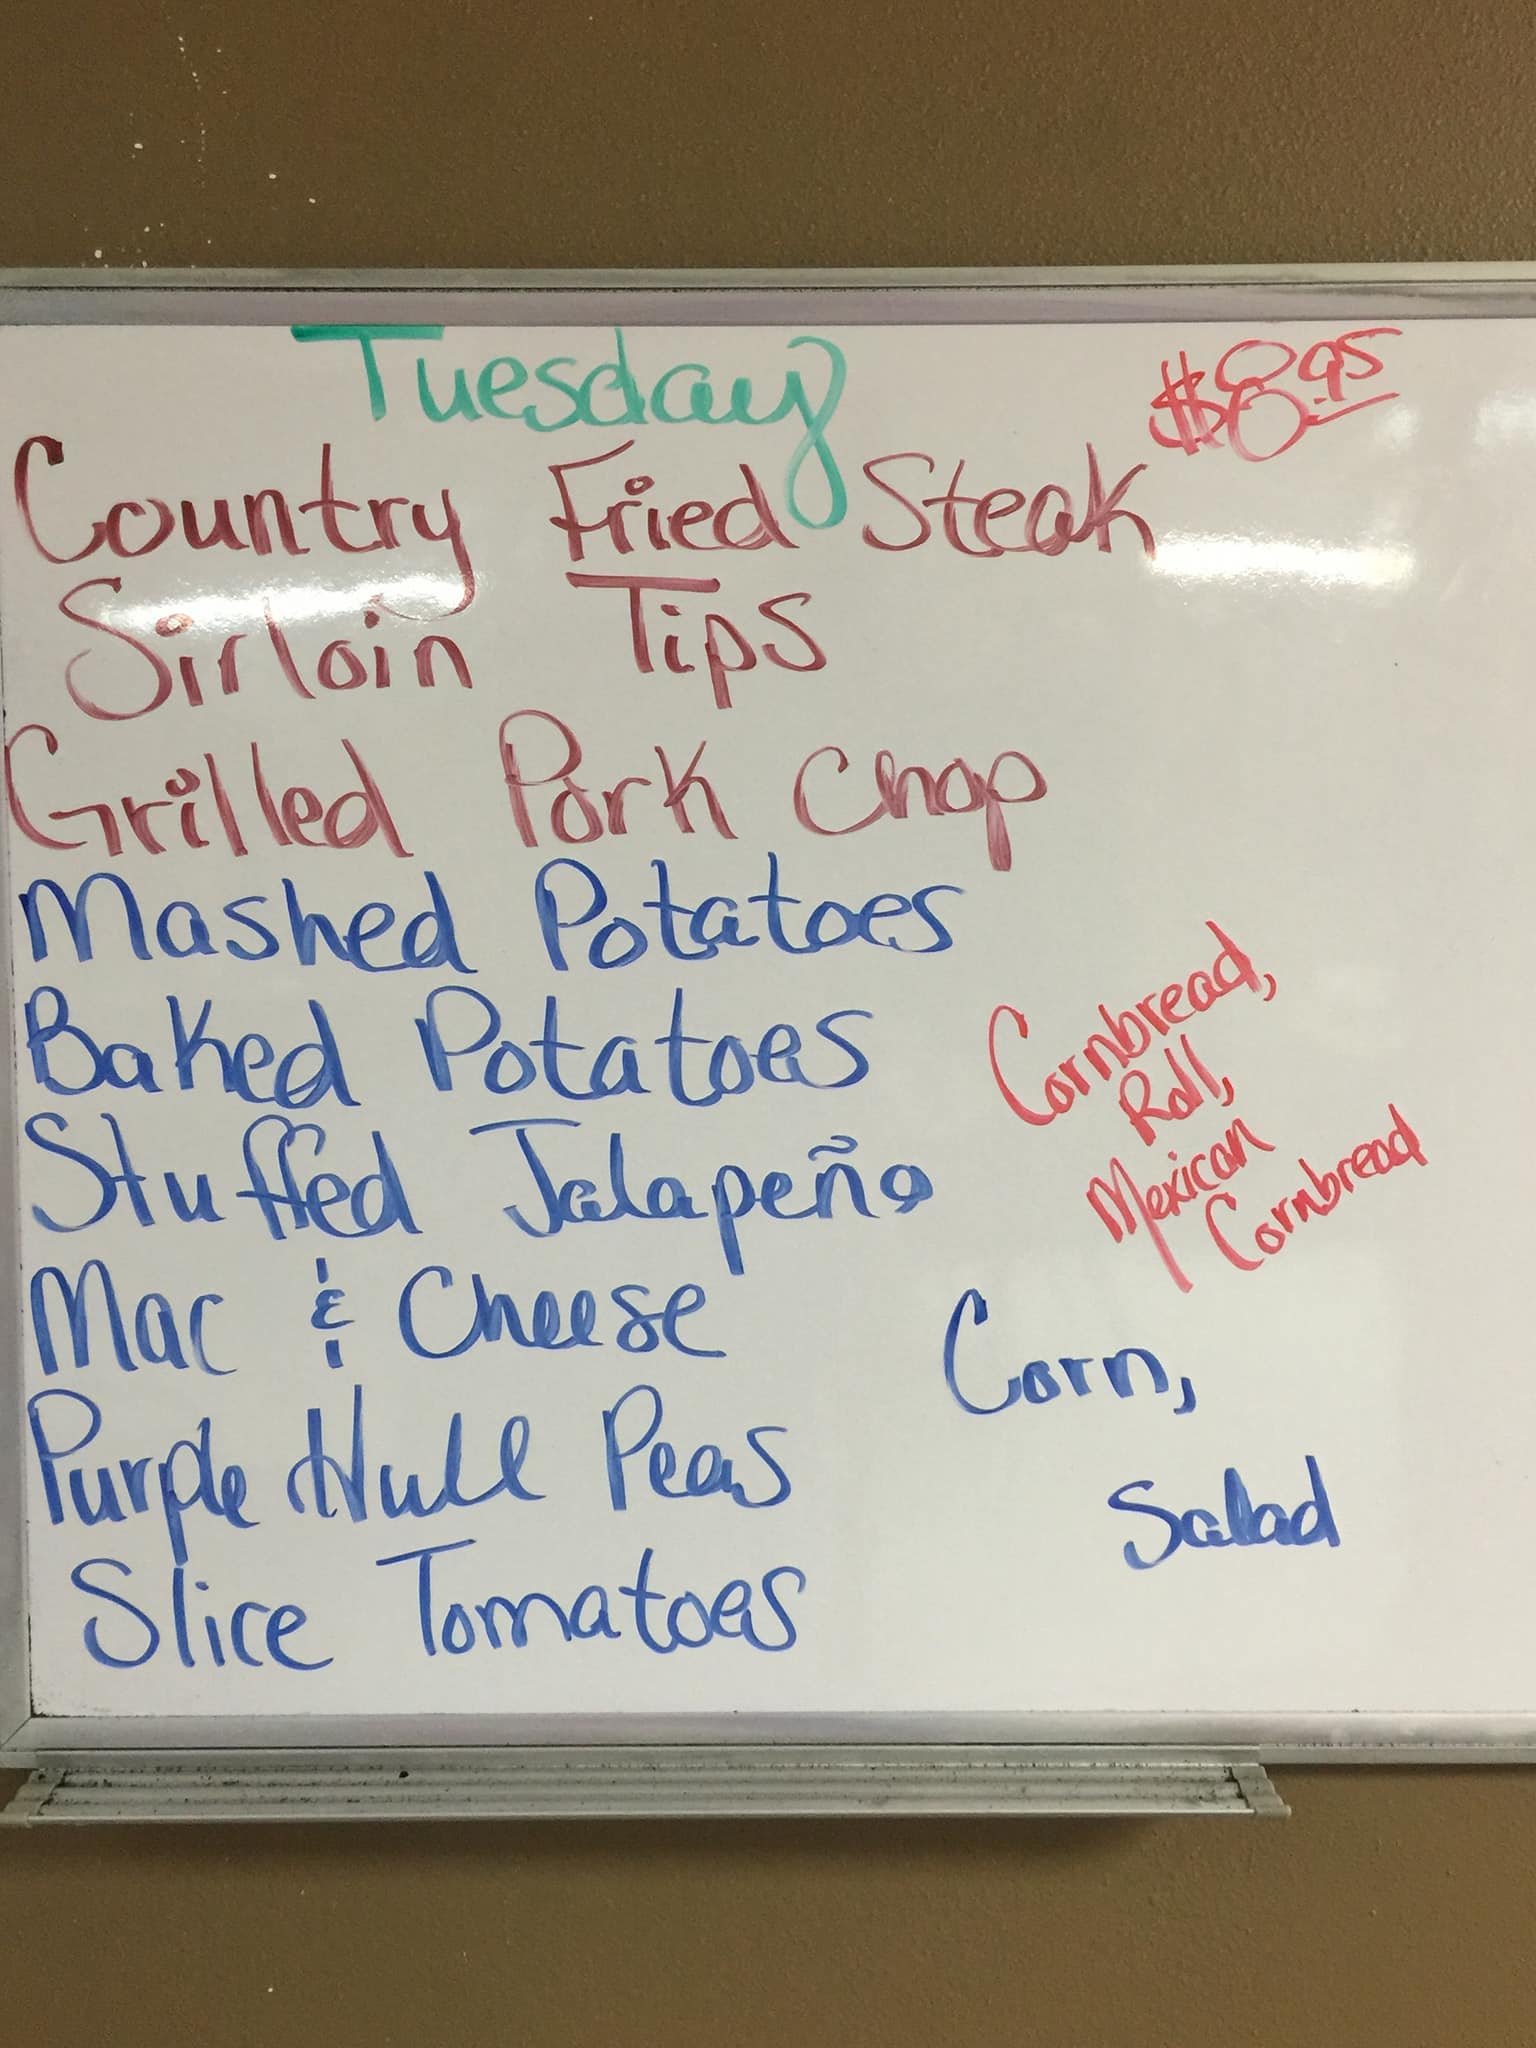 Tuesday
$8.95
Country Fried Steak
Sirloin Tips
Grilled Pork Chop
Mashed Potatoes
Baked Potatoes
Stuffed Jalapeño
Mac & Cheese
Purple Hull Peas
Slice Tomatoes
Cornbread,
Roll,
Mexican
Cornbread
Corn,
Salad